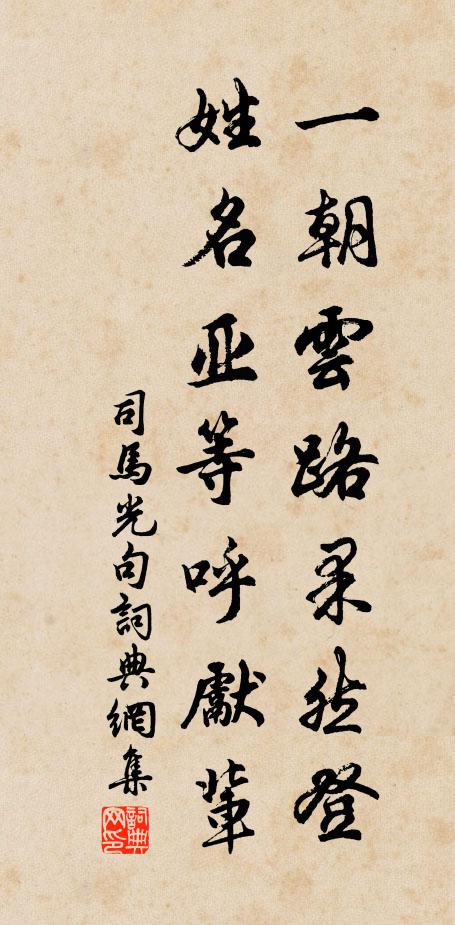 一朝雲路果然登
姓名亚等呼獻輩
司馬光句詞典網集
詞典网印